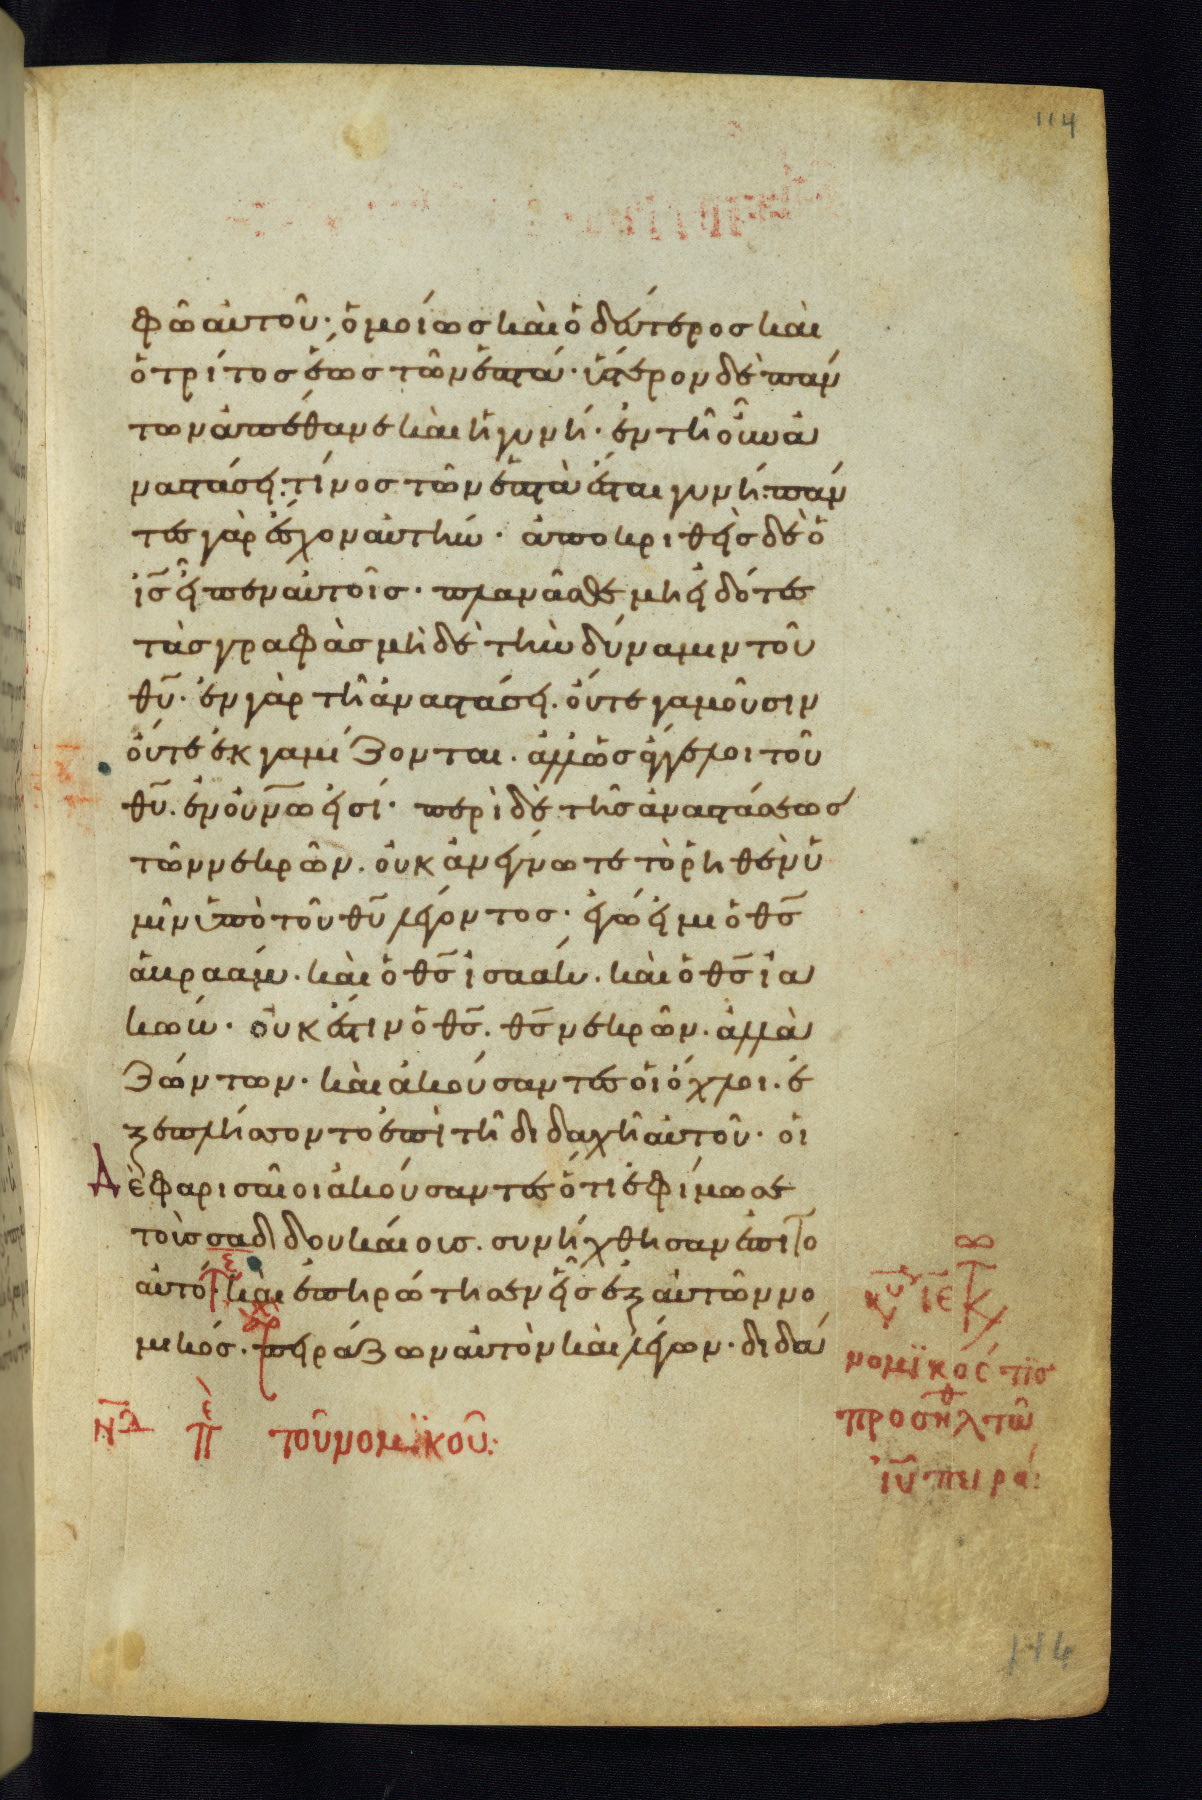 114
φῶ αυτοῦ· ὁμοίωσ και ὁ δεύτεροσ και
ὁ τρίτοσ ἕωσ τῶν ἑπτά· ὕστερον δὲ πάν
των ἀπέθανε και ἡ γυνή· ἐν τῆ οὖν ἀ
ναστάσει· τίνοσ τῶν ἑπτὰ ἔσται γυνή· πάν
τεσ γὰρ ἔσχον αυτήν· ἀποκριθεὶσ δὲ ὁ
ἰ̅σ̅ εἶπεν αυτοῖσ· πλανᾶσθε μὴ εἰδότεσ
τὰσ γραφὰσ μὴ δὲ τὴν δύναμιν τοῦ
θ̅υ̅· ἐν γὰρ τῆ ἀναστάσει· οὔτε γαμοῦσιν
οὔτε ἐκγαμίζονται· ἀλλ' ὡσ ἄγγελοι τοῦ
θ̅υ̅· ἐν ου̅ν̅ω εἰσί· περὶ δὲ τῆσ ἀναστάσεωσ
τῶν νεκρῶν· οὐκ ἀνέγνωτε τὸ ῥηθὲν ὑ
μῖν ὑπὸ τοῦ θ̅υ̅ λέγοντοσ· ἐγώ εἰμι ὁ θ̅σ̅
ἀβραάμ· καὶ ὁ θ̅σ̅ ἰσαάκ· καὶ ὁ θ̅σ̅ ἰα
κώβ· οὐκ ἔστιν ὁ θ̅σ̅· θ̅σ̅ νεκρῶν· ἀλλὰ
ζώντων· καὶ ἀκούσαντεσ οἱ ὄχλοι· ἐ
ξεπλήσσοντο ἐπὶ τῆ διδαχῆ αυτοῦ· οἱ
Δὲ φαρισαῖοι ἀκούσαντεσ ὅτι ἐφίμωσε
τοὺσ σαδδουκαίουσ· συνήχθησαν ἐπι το
αυτό· καὶ ἐπηρώτησεν εἷσ ἐξ αυτῶν νο
μικόσ· πειράζων αυτὸν και λέγων· διδά
ν̅δ̅ πὲ τοῦ νομϊκοῦ:
κυ ιε
νομϊκός τϊσ
προσηλθ τῶ
ἰ̅υ̅ πειρά:
114